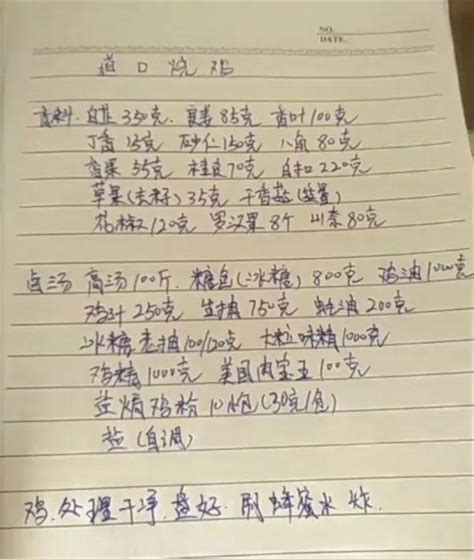 NO.
DATE.
道口烧鸡
香料. 白芷350克. 良姜85克 香叶100克
丁香15克 砂仁150克 八角80克
香果55克 桂皮70克 白扣220克
草果(去籽)35克 干香菇(适量)
花椒120克 罗汉果8个 山奈80克
卤汤 高汤100斤. 糖色(冰糖)800克 鸡油1000克
鸡汁250克 生抽750克 蚝油200克
冰糖老抽100/120克 大粒味精1000克
鸡精1000克 美国肉宝王100克
盐焗鸡粉10小包(30克/包)
盐(自调)
鸡.处理干净.盘好.刷蜂蜜水 炸.